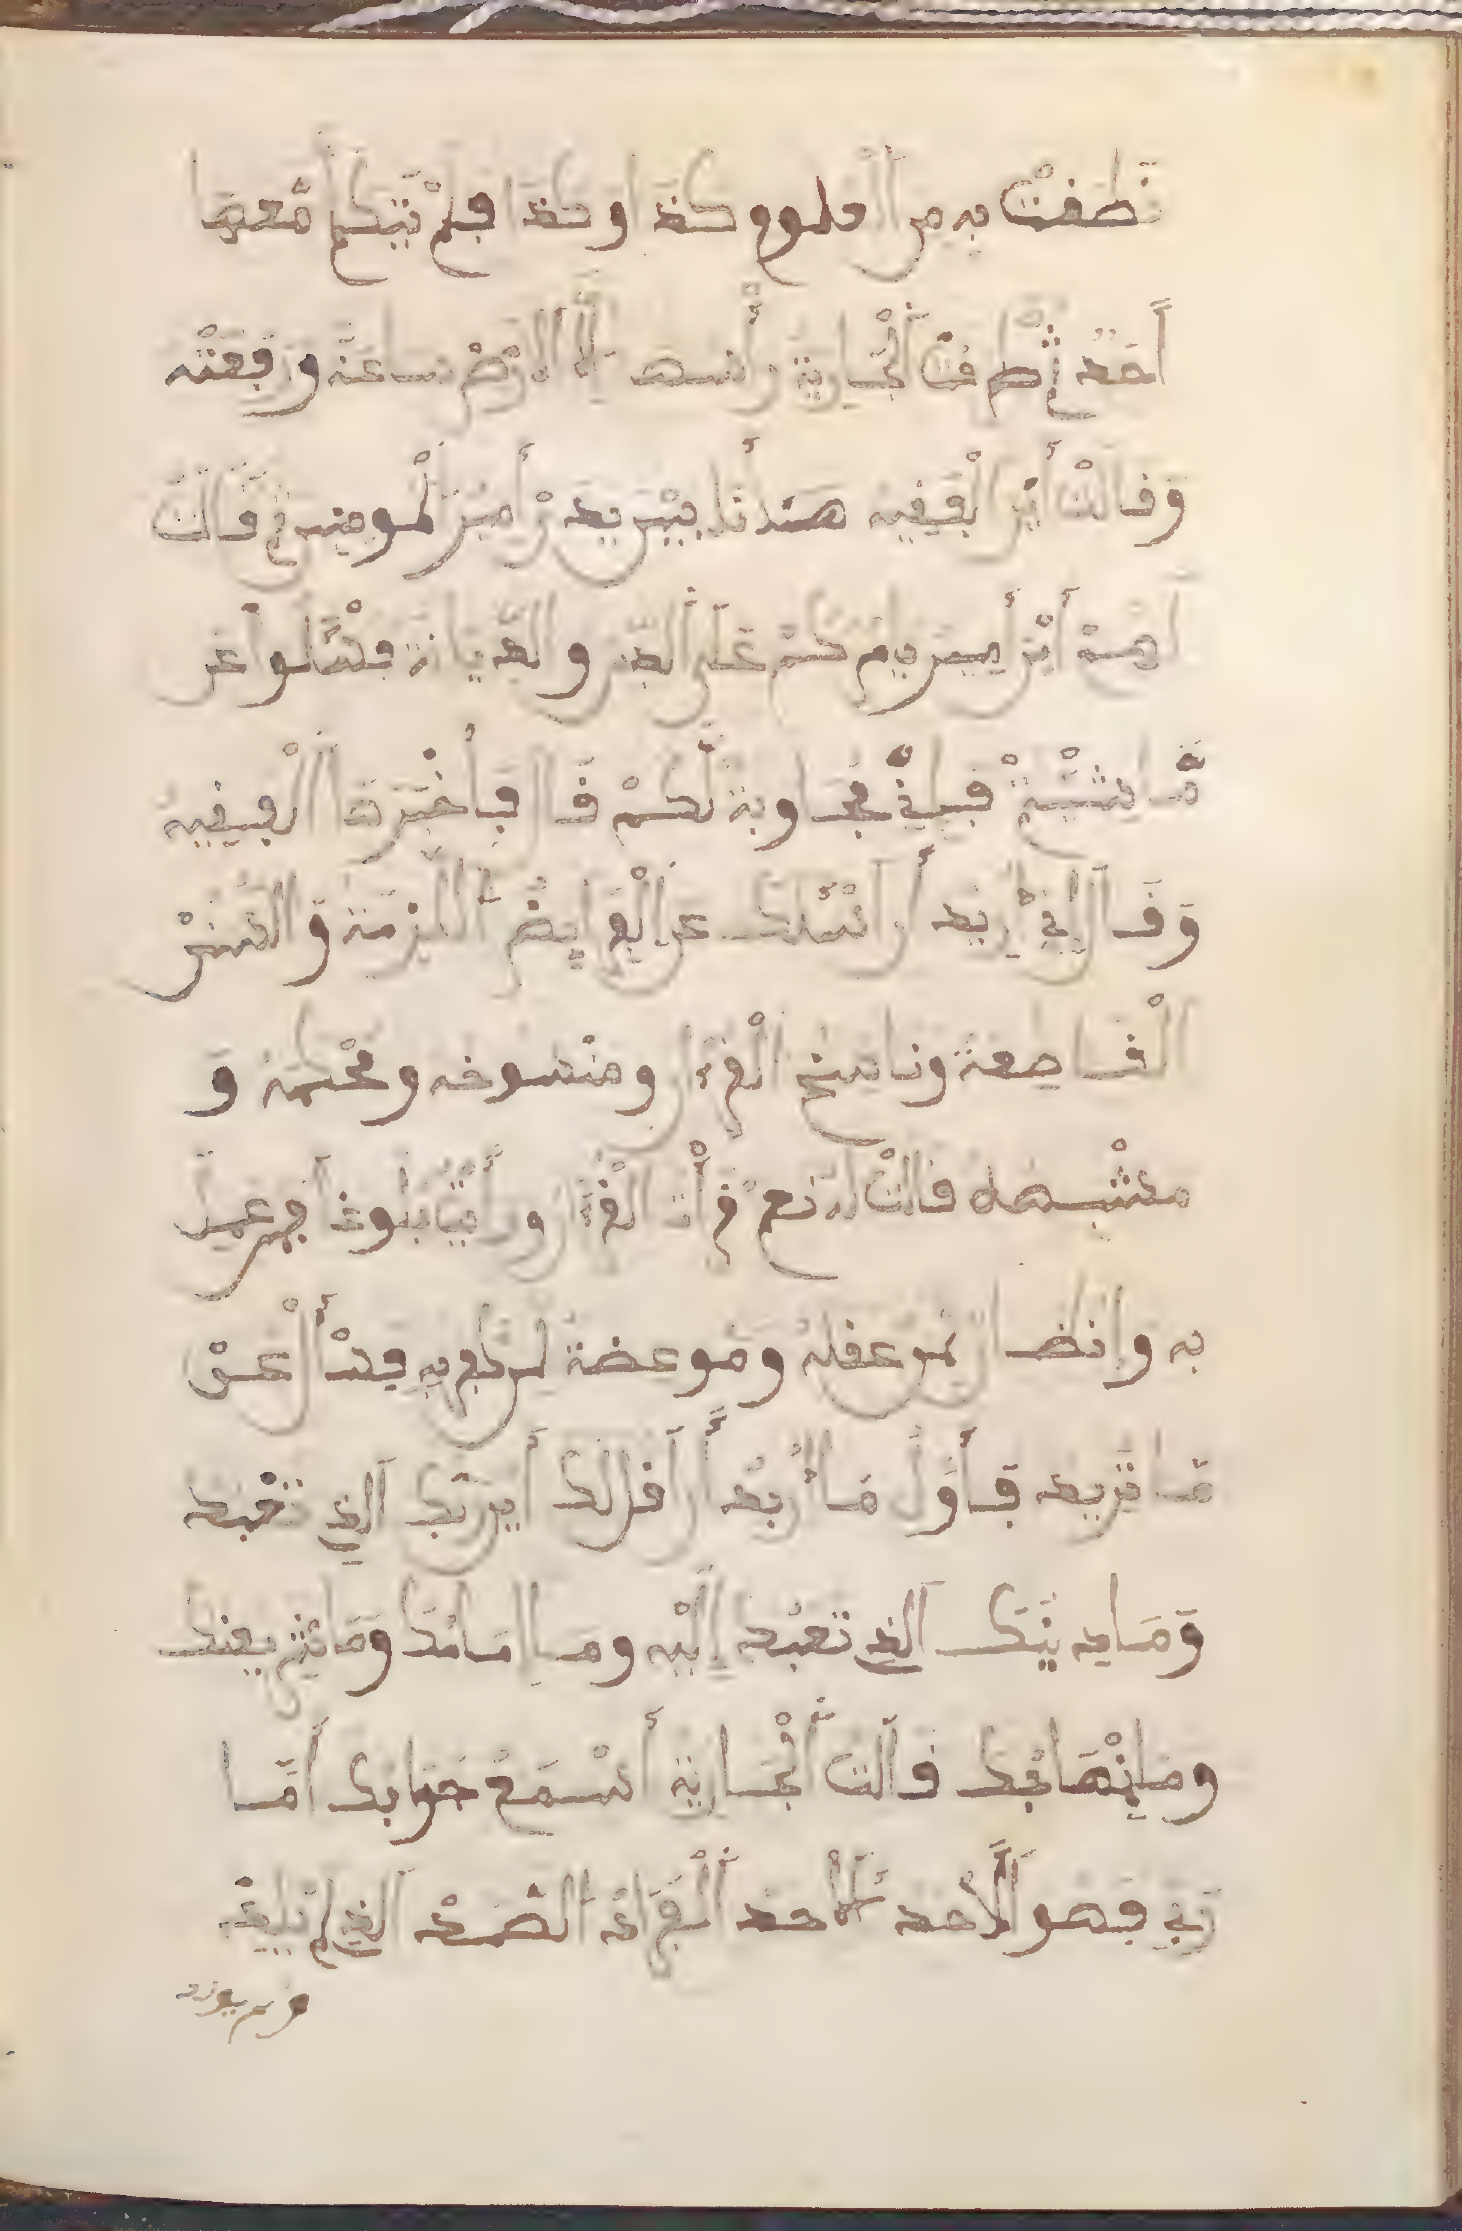 نطقت به من العلوم كذا وكذا فلم يتكلم معها
أحد ثم أطرقت الجارية رأسها إلى الارض ساعة ورفعته
وقالت أين الفقيه هذا أنا بين يدين أمير المومنين قالت
أين أمين يومكم على الدين والديانة فسئلوا عن
ما شيتم فإني مجاوبة لكم قال فأخبرها الفقيه
وقال إني أريد أن اسئلك عن الفرايض اللازمة والسنن
القاطعة وناسخ القرءان ومنسوخه ومحكمه و
متشبهه قالت له نعم قرأت القرءان ورأيت بلوغا فمن عمل
به وانظا لمن عقله وموعضة لمن بم به فسأل عن
ما تريد فأول ما أريد أن اقل لك أين ربك الذي تعبد
وما دينك الذي تعبد إليه وما امامك وما نبيك
وما منهاجك قالت الجارية أسمع جوابك أما
ربي فهو الأحد الأحد الفرد الصمد الذي لم يلد
ولم يولد